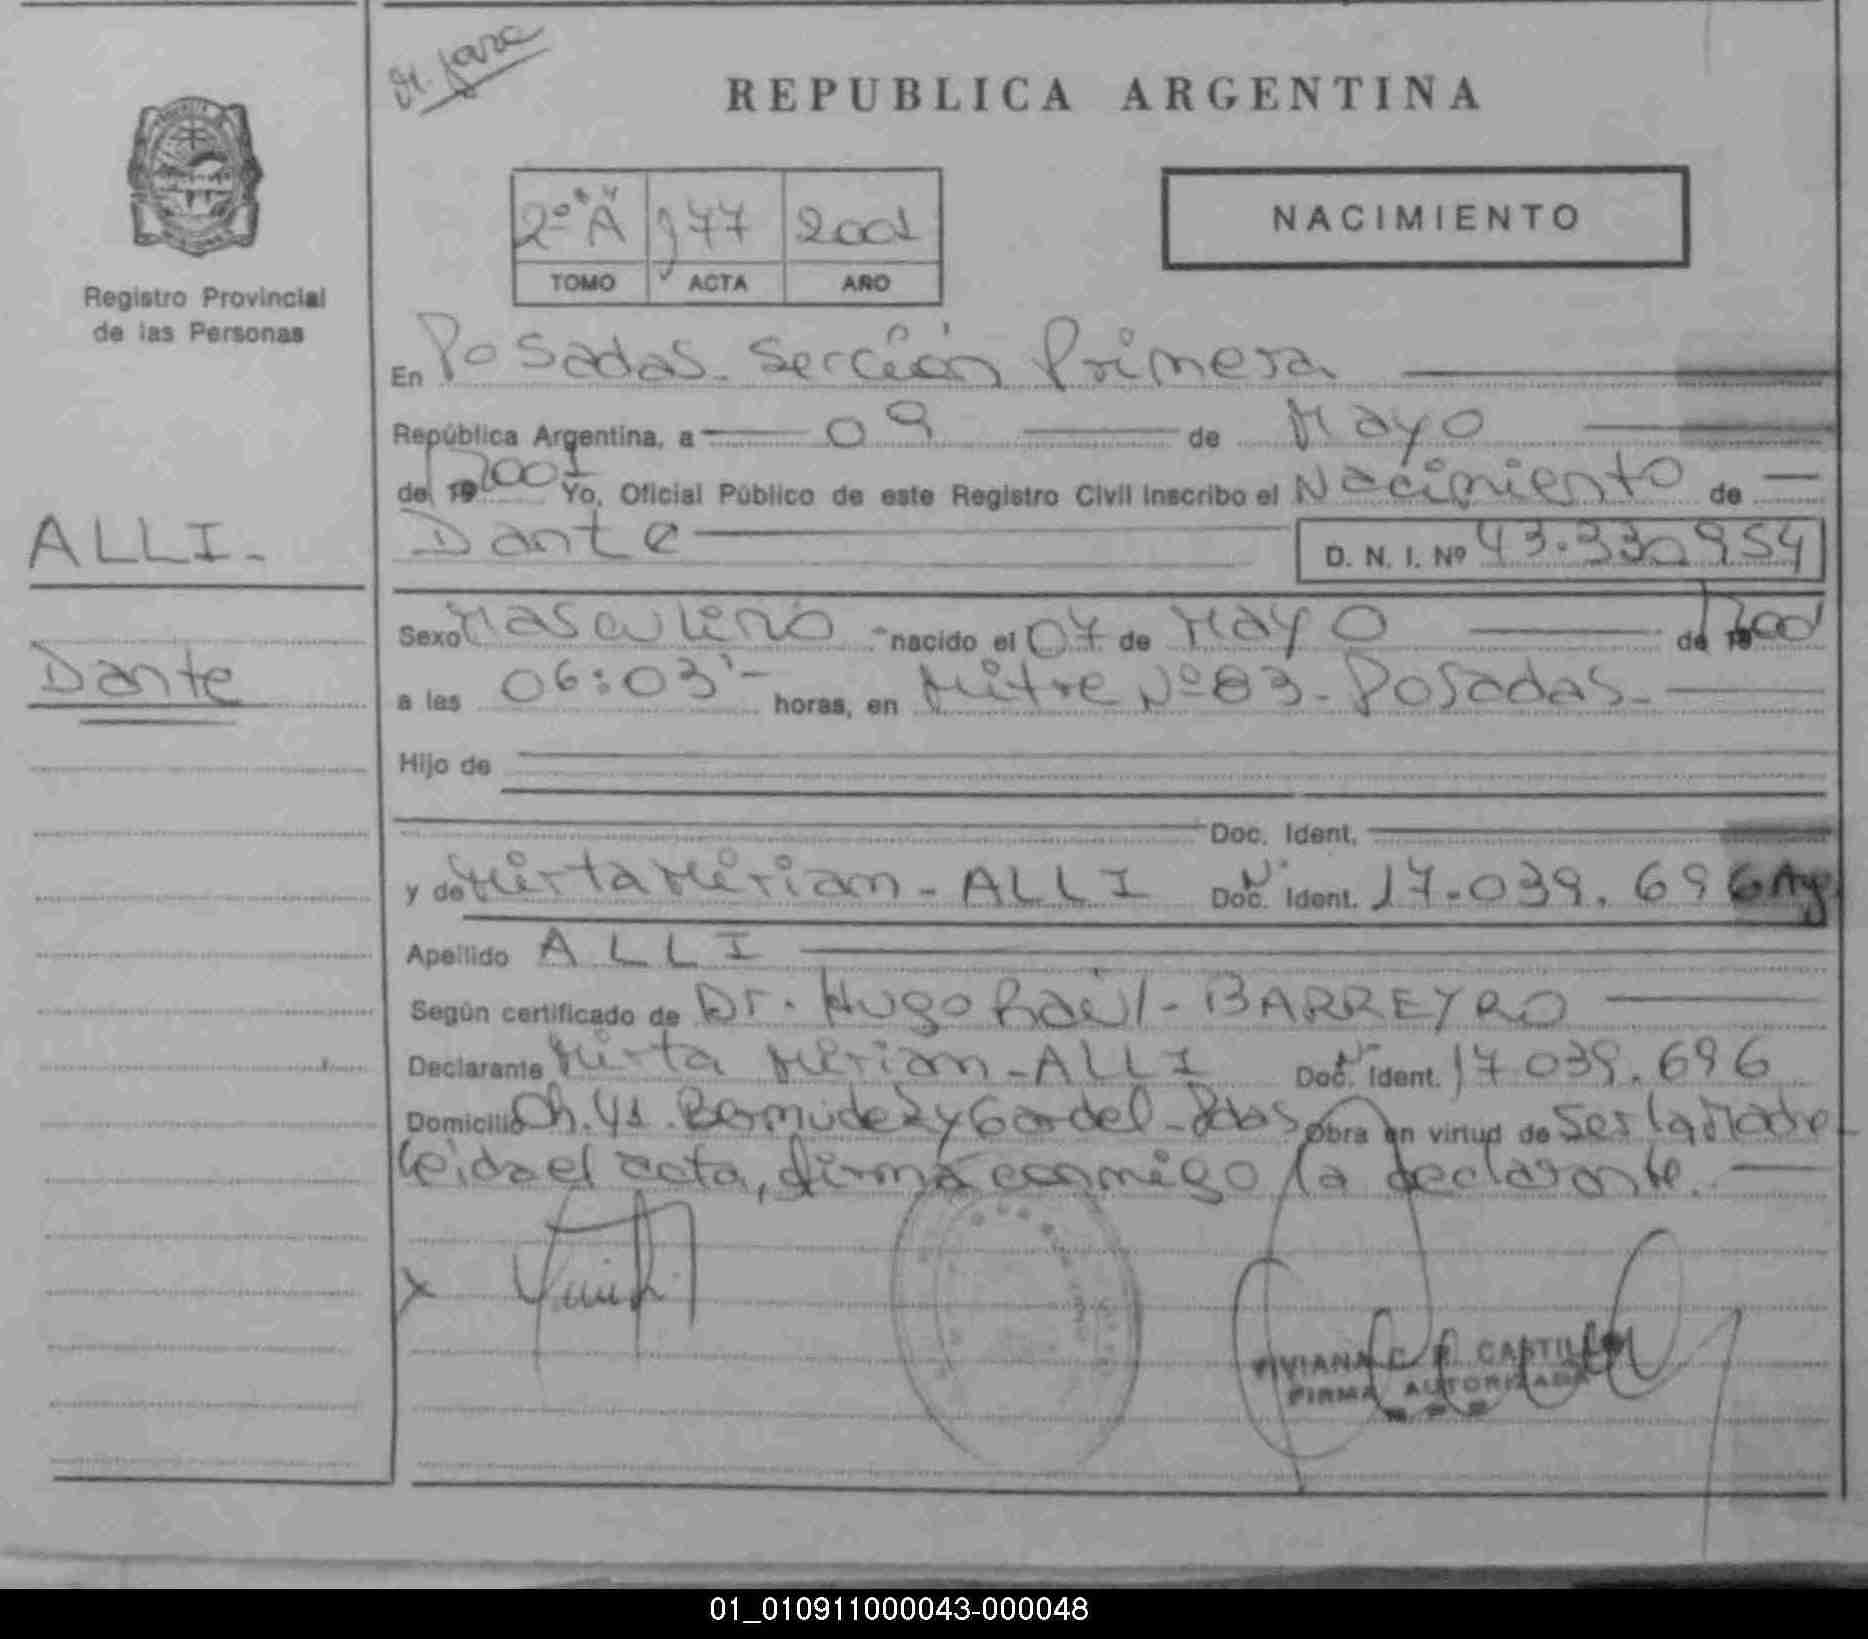 REPUBLICA ARGENTINA
2º "A" 977 2001
TOMO ACTA AÑO
NACIMIENTO
Registro Provincial
de las Personas
En Posadas. Sección Primera
República Argentina, a 09 de Mayo
de 19 2001 Yo, Oficial Público de este Registro Civil inscribo el Nacimiento de
ALLI.
Dante
D. N. I. Nº 43.330.954
Sexo Masculino nacido el 07 de Mayo de 19 2001
Dante
a las 06:03'- horas, en Mitre Nº 83 - Posadas.
Hijo de
Doc. Ident.
y de Mirta Mirian - ALLI Doc. Ident. 17.039.696
Apellido ALLI
Según certificado de Dr. Hugo Raúl - BARREYRO
Declarante Mirta Mirian - ALLI Doc. Ident. 17.039.696
Domicilio Ch. 41. Bermudez y Gardel - Pdas Obra en virtud de ser la Madre
leida el acta, firma conmigo la declarante.
x
VIVIANA C. R. CASTILLO
FIRMA AUTORIZADA
01_010911000043-000048